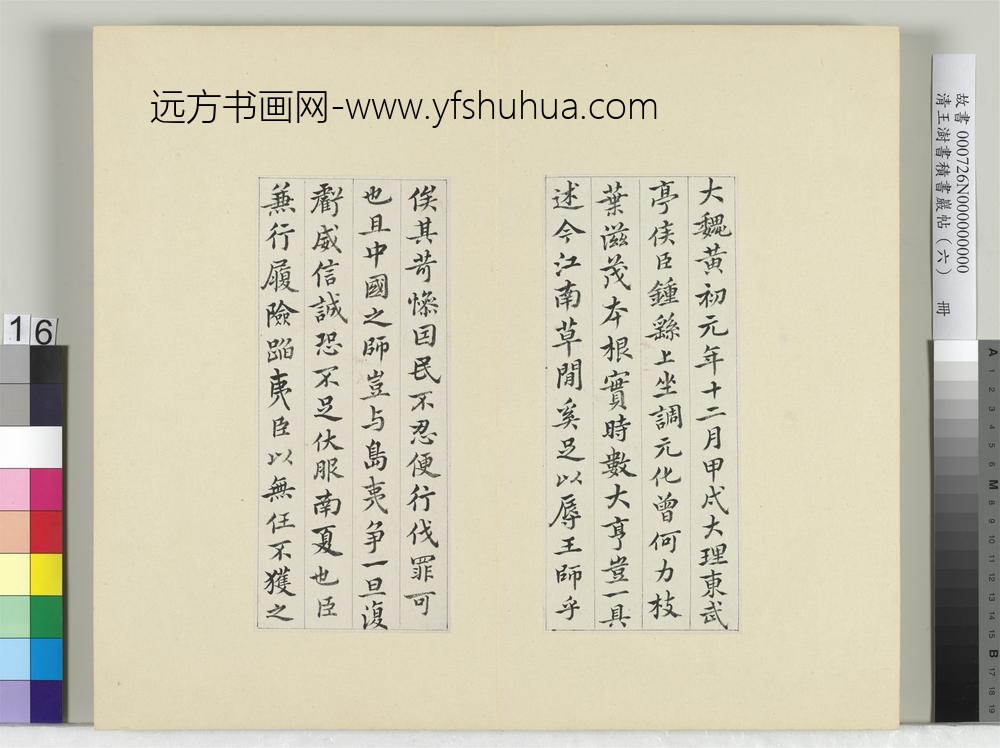 远方书画网-www.yfshuhua.com
故書 000726N000000000
清王澍書積書巖帖（六） 冊
大魏黃初元年十二月甲戌大理東武
亭侯臣鍾繇上坐調元化曾何力枝
葉滋茂本根實時數大亨豈一具
述今江南草閒奚足以辱王師乎
俟其苛慘囯民不忍便行伐罪可
也且中國之師豈与島夷爭一旦復
虧威信誠恐不足伏服南夏也臣
兼行履險蹈夷臣以無任不獲之
16
A 1 2 3 4 5 6 M 8 9 10 11 12 13 14 15 B 17 18 19